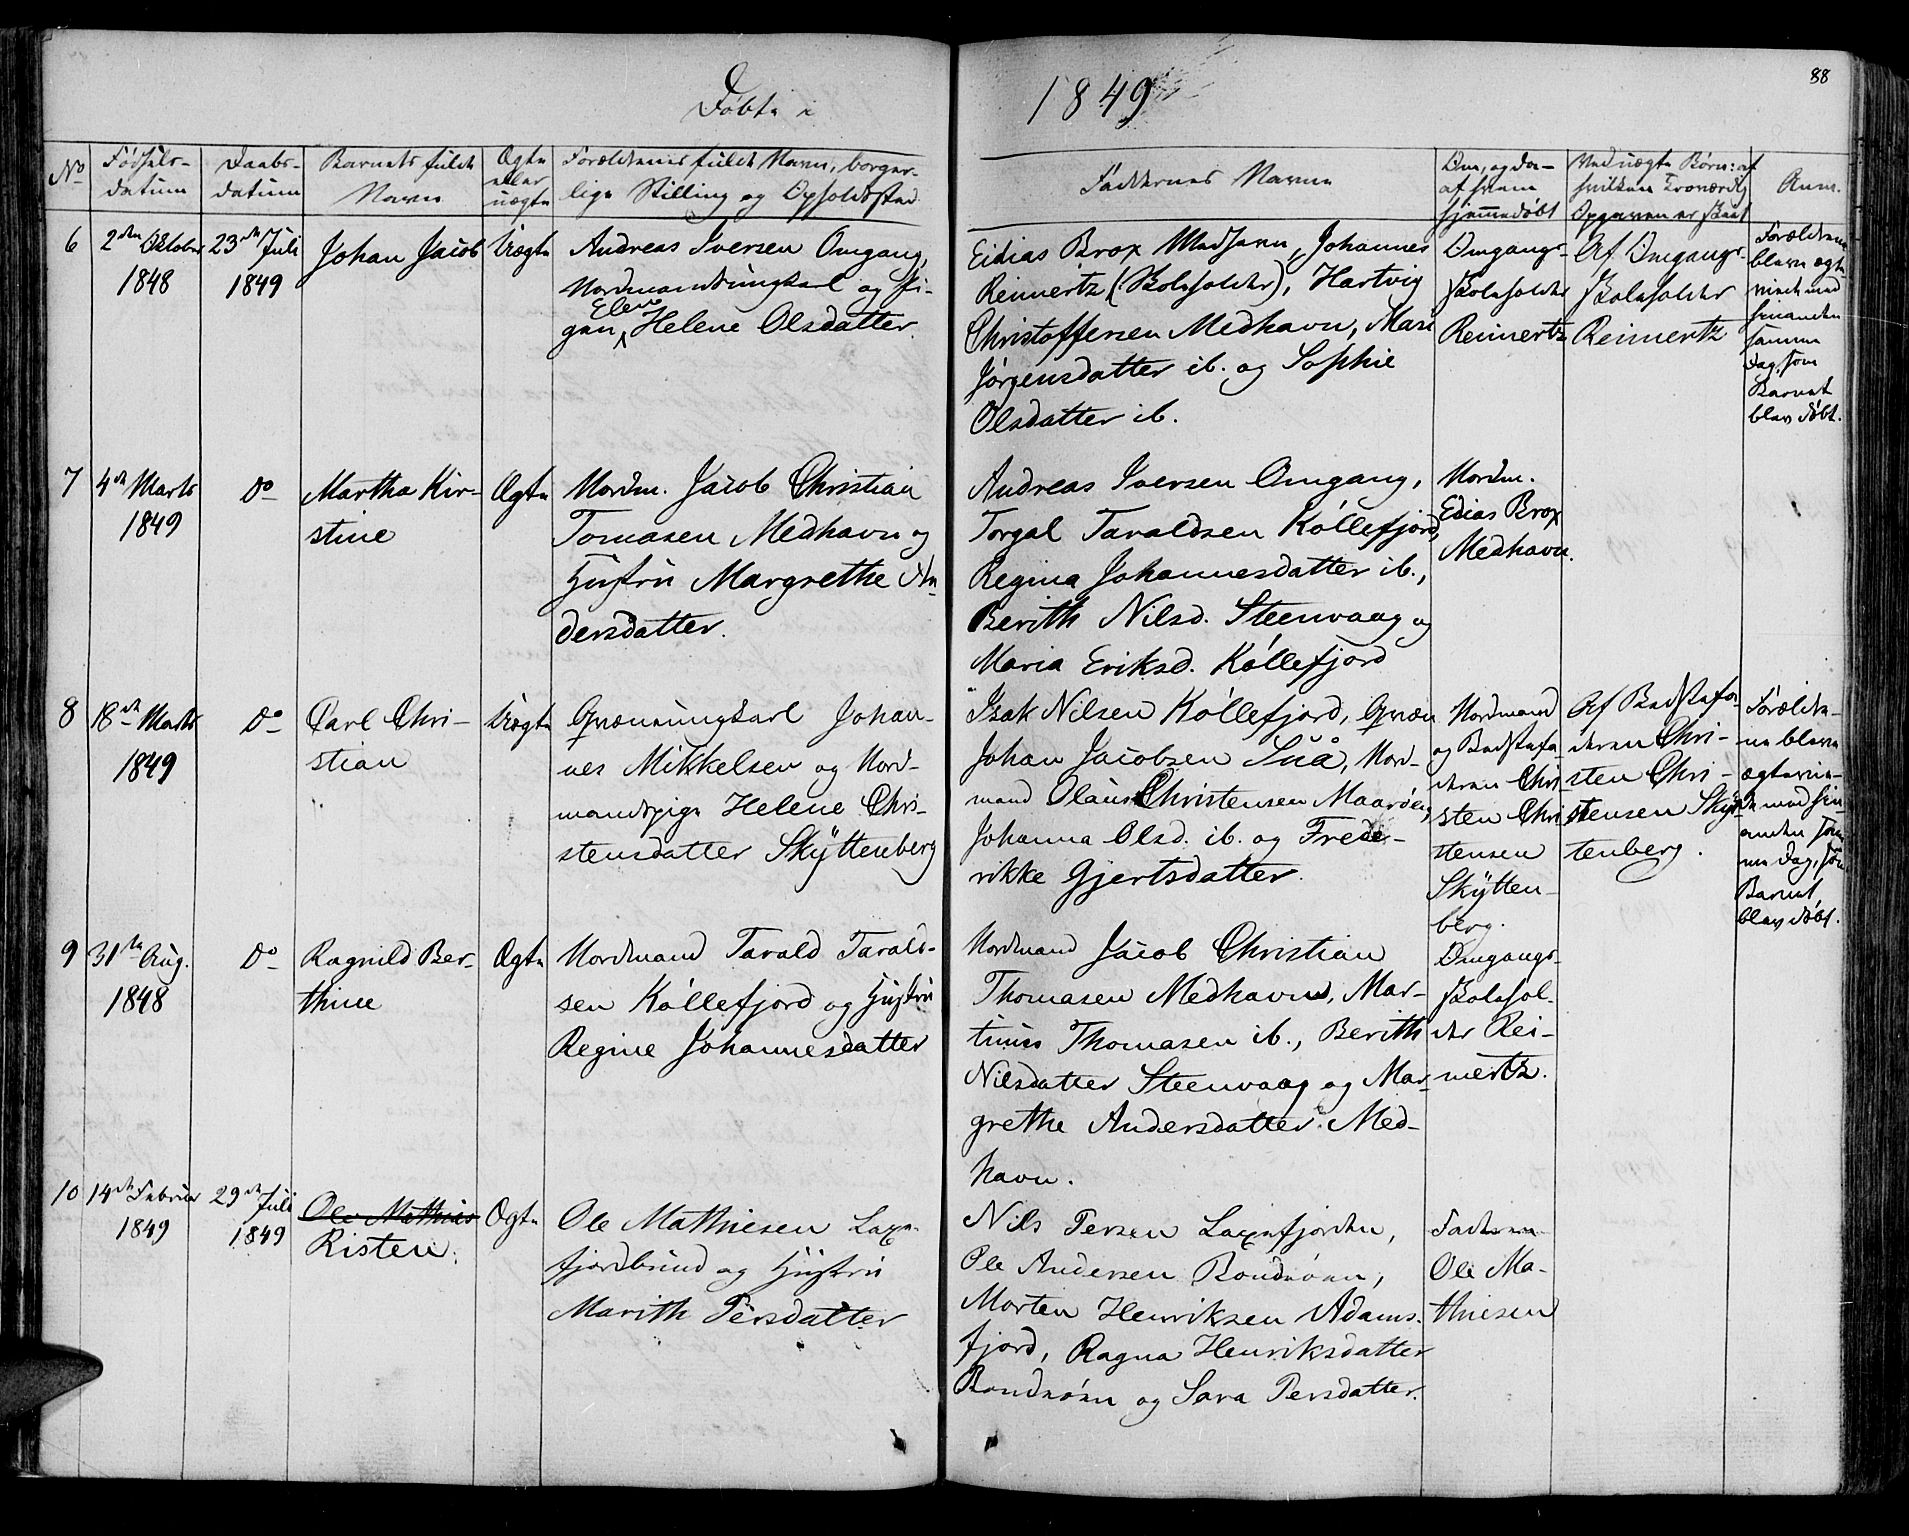 88
Døbte i 1849
No
Fødsels-
datum
Daabs-
datum
Barnets fulde
Navn
Ægte
eller
uægte
Forældrenes fulde Navn, borger-
lige Stilling og Opholdssted
Faddernes Navne
Om, og da
af hvem
hjemmedøbt
Ved uægte Børn: af
hvilken troværdig
Opgaven er skeet
Anm.
6
2den Oktober
1848
23de Juli
1849
Johan Jacob
Uægte
Andreas Iversen Omgang,
Nordmandsungkarl og Pi-
Elen
gen, Helene Olsdatter
Eidias Brox Medhavn, Johannes
Reimertz (Skoleholder), Hartvig
Christoffersen Medhavn, Mari
Jørgensdatter ib. og Sophie
Olsdatter ib.
Omgangs-
skoleholder
Reimertz
Af Omgangs-
skoleholder
Reimertz
Forældrene
bleve ægte-
viede med
hinanden
samme
Dag, som
Barnet
blev døbt.
7
4de Marts
1849
Do
Martha Kir-
stine
Ægte
Nordm. Jacob Christian
Tomasen Medhavn og
Hustru Margrethe An-
dersdatter.
Andreas Iversen Omgang,
Torgal Taraldsen Kóllefjord,
Regina Johannesdatter ib.,
Berith Nilsd. Steenvaag og
Maria Eriksd. Kóllefjord
Nordm.
Edias Brox
Medhavn.
8
18de Marts
1849
Do
Carl Chri-
stian
Uægte
Qvænungkarl Johan-
nes Mikkelsen og Nord-
mandspige Helene Chri-
stensdatter Skÿttenberg
Isak Nilsen Kóllefjord, Qvæn
Johan Jacobsen Suå, Nord-
mand Olaus Christensen Maarøen,
Johanna Olsd. ib. og Frede-
rikke Gjertsdatter.
Nordmand
og Bedstefa
deren Chri
sten Chri
stensen
Skÿtten-
berg.
Af Bedstefa-
deren Chri-
sten Chri-
stensen Skÿt-
tenberg.
Forældre-
ne bleve
ægtevie-
de med hin-
anden sam
me Dag, som
Barnet
blev døbt.
9
31te Aug.
1848
Do
Ragnild Ber-
thine
Ægte
Nordmand Tarald Tarald-
sen Kóllefjord og Hustru
Regine Johannesdatter
Nordmand Jacob Christian
Thomasen Medhavn, Mar-
tinus Thomasen ib., Berith
Nilsdatter Steenvaag og Mar-
grethe Andersdatter Med-
havn.
Omgangs-
skolehol-
der Rei-
mertz.
10
14de Februar
1849
29de Juli
1849
Ole Mathias
Risten.
Ægte
Ole Mathiesen Laxe-
fjordbund og Hustru
Marith Persdatter
Nils Persen Laxefjorden,
Ole Andersen Bondøen,
Morten Henriksen Adams-
fjord, Ragna Henriksdatter
Bondøen og Sara Persdatter.
Faderen
Ole Ma-
thiesen